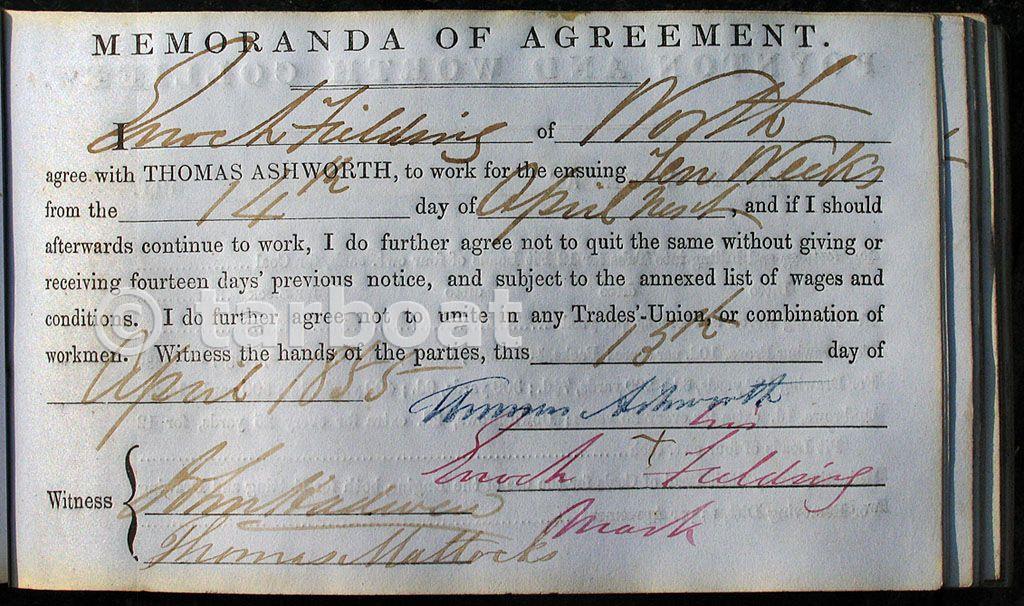 MEMORANDA OF AGREEMENT.
POYNTON AND WORTH COLLIERY.
I Enoch Fielding of Worth
agree with THOMAS ASHWORTH, to work for the ensuing Ten Weeks
from the 14th day of April next, and if I should
afterwards continue to work, I do further agree not to quit the same without giving or
receiving fourteen days' previous notice, and subject to the annexed list of wages and
conditions. I do further agree not to unite in any Trades'-Union, or combination of
workmen. Witness the hands of the parties, this 13th day of
April 1855
Thomas Ashworth
his
Enoch + Fielding
mark
Witness
John
Thomas Mattocks
© tarboat